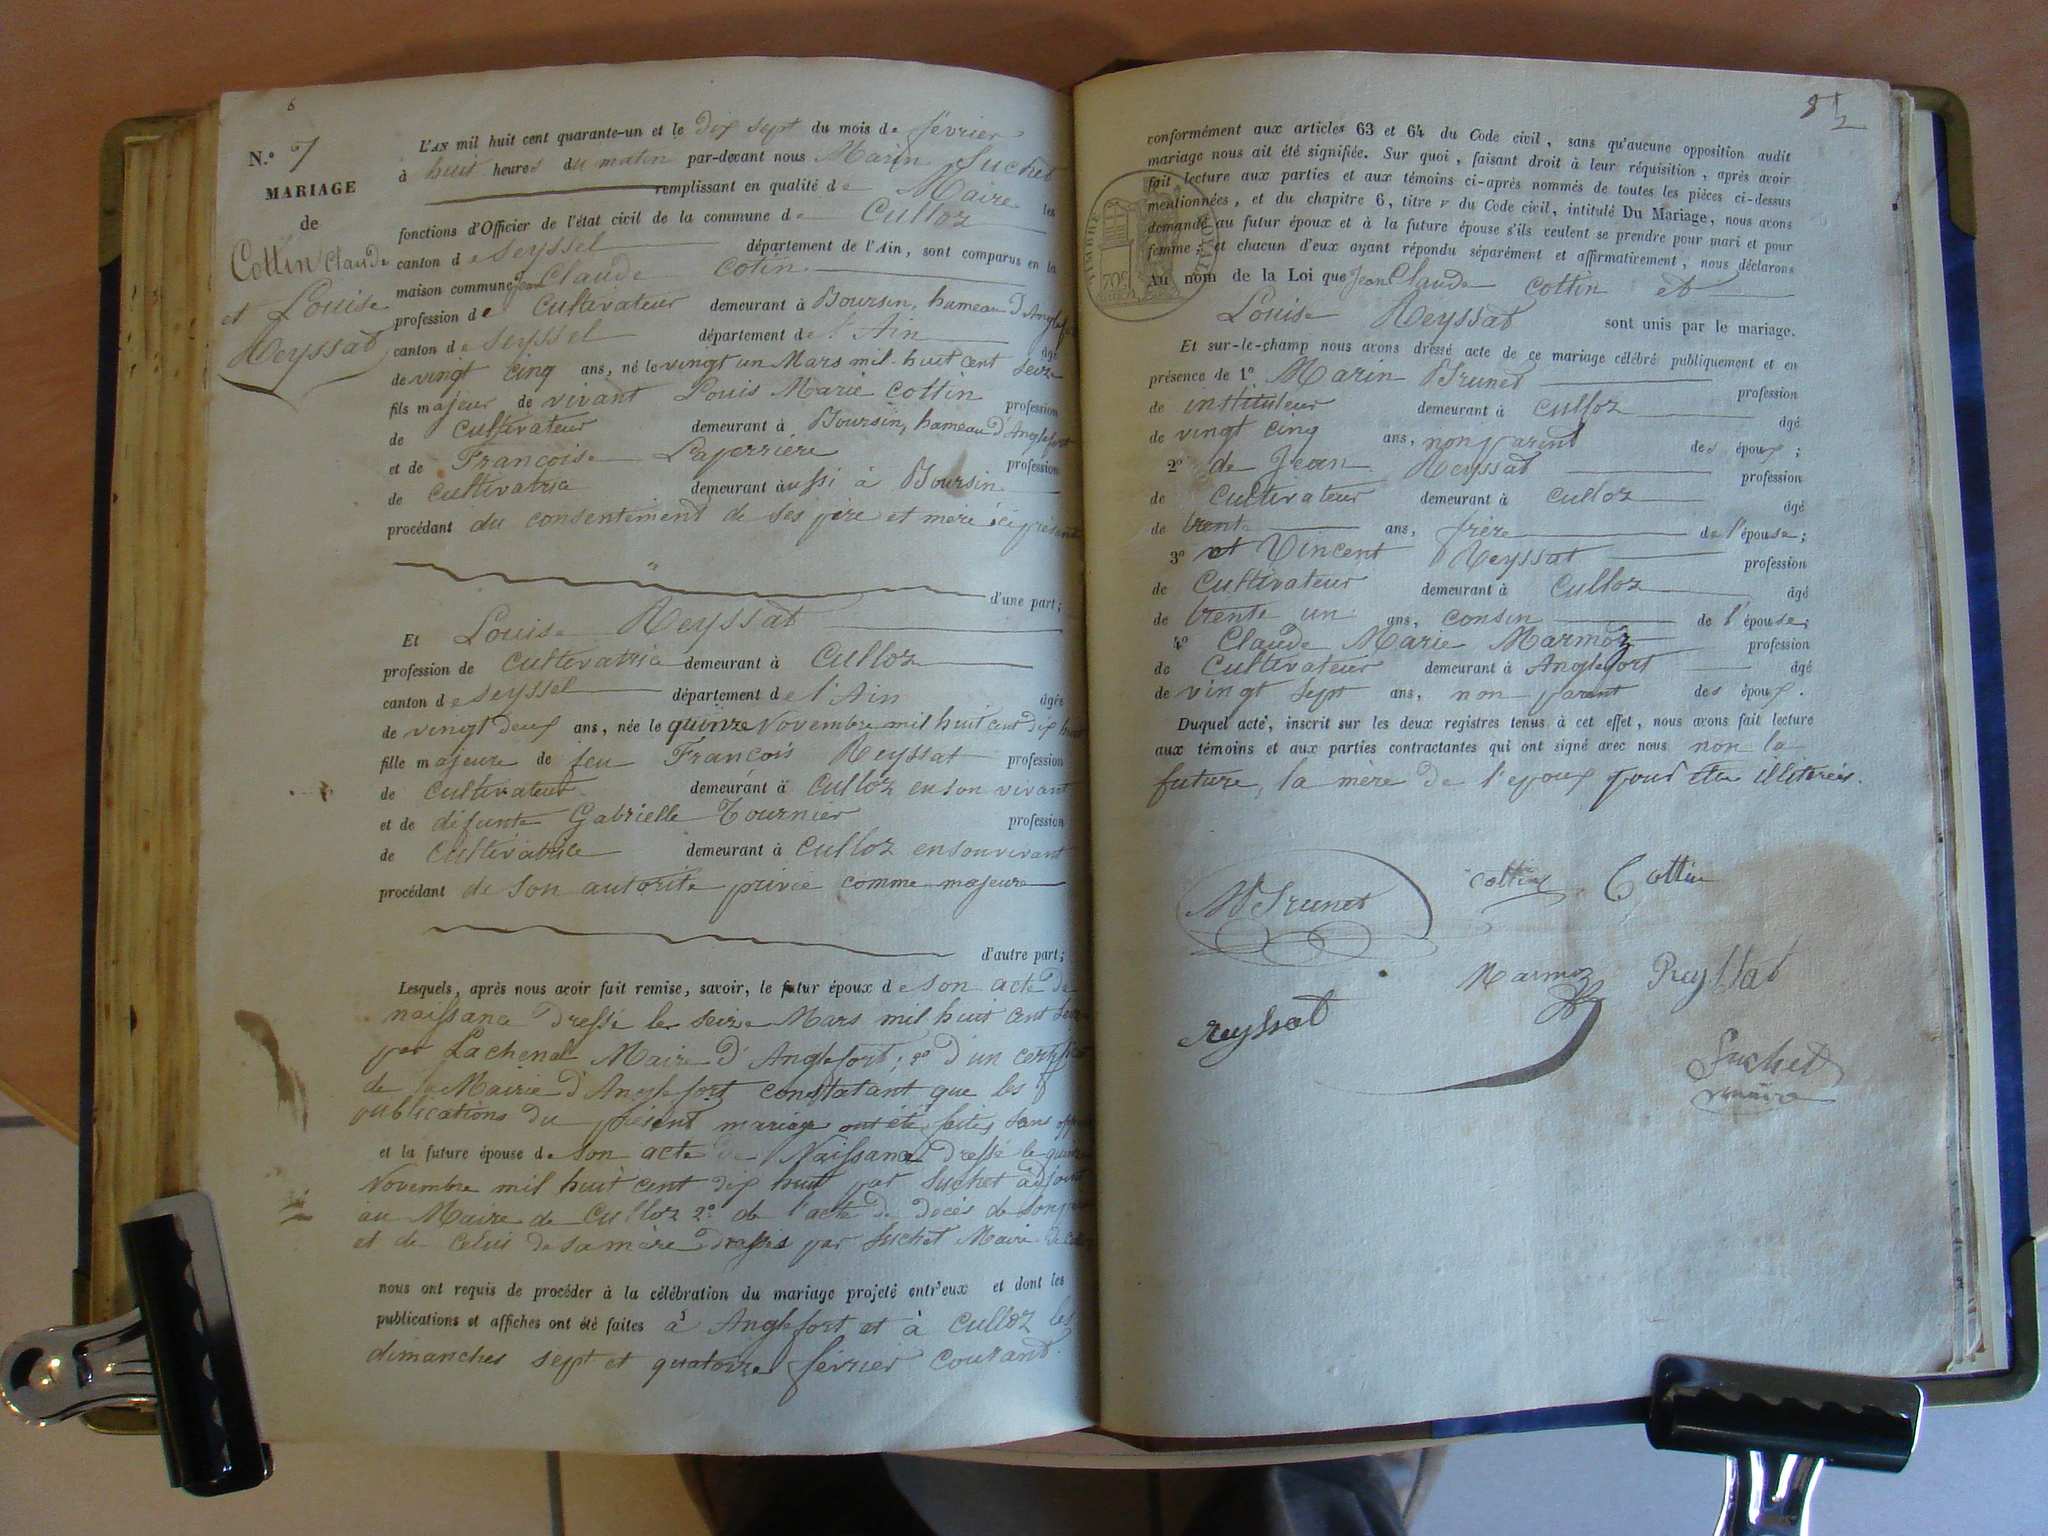 6
N.o 7
MARIAGE
de
Cottin Claude
et Louise
Reyssat
L'AN mil huit cent quarante-un et le dix sept du mois de février
à huit heures du matin par-devant nous Marin Suchet
remplissant en qualité de Maire les
fonctions d'Officier de l'état civil de la commune de Culloz
canton de seyssel département de l'Ain, sont comparus en la
maison commune Jean Claude Cotin
profession de Cultivateur demeurant à Boursin, hameau d'Anglefort
canton de seyssel département de l'Ain âgé
de vingt cinq ans, né le vingt un Mars mil huit cent seize
fils majeur de vivant Louis Marie Cottin profession
de Cultivateur demeurant à Boursin, hameau d'Anglefort
et de Francoise Laperriere profession
de Cultivatrice demeurant aussi à Boursin
procédant du consentement de ses père et mère ici présents
d'une part;
Et Louise Reyssat
profession de Cultivatrice demeurant à Culloz
canton de seyssel département de l'Ain âgée
de vingt deux ans, née le quinze Novembre mil huit cent dix huit
fille majeure de feu François Reyssat profession
de Cultivateur demeurant à Culloz en son vivant
et de défunte Gabrielle Tournier profession
de Cultivatrice demeurant à Culloz en son vivant
procédant de son autorité privée comme majeure
d'autre part;
Lesquels, après nous avoir fait remise, savoir, le futur époux de son acte de
naissance dressé le seize Mars mil huit cent seize
par Lachenal Maire d'Anglefort; 2o d'un certificat
de la Mairie d'Anglefort constatant que les
publications du présent mariage ont été faites sans
et la future épouse de son acte de Naissance dressé le quinze
Novembre mil huit cent dix huit par Suchet adjoint
au Maire de Culloz 2o de l'acte de décès de son père
et de celui de sa mère dressés par Suchet Maire de Culloz
nous ont requis de procéder à la célébration du mariage projeté entr'eux et dont les
publications et affiches ont été faites à Anglefort et à Culloz les
dimanches sept et quatorze février courant.
8 1/2
conformément aux articles 63 et 64 du Code civil, sans qu'aucune opposition audit
mariage nous ait été signifiée. Sur quoi, faisant droit à leur réquisition, après avoir
fait lecture aux parties et aux témoins ci-après nommés de toutes les pièces ci-dessus
mentionnées, et du chapitre 6, titre v du Code civil, intitulé Du Mariage, nous avons
demandé au futur époux et à la future épouse s'ils veulent se prendre pour mari et pour
femme; et chacun d'eux ayant répondu séparément et affirmativement, nous déclarons
TIMBRE ROYAL
70c
Au nom de la Loi que Jean Claude Cottin et
Louise Reyssat sont unis par le mariage.
Et sur-le-champ nous avons dressé acte de ce mariage célébré publiquement et en
présence de 1o Marin Brunet profession
de instituteur demeurant à Culloz âgé
de vingt cinq ans, non parent des époux;
2o de Jean Reyssat profession
de Cultivateur demeurant à Culloz âgé
de trente ans, frère de l'épouse;
3o et Vincent Reyssat profession
de Cultivateur demeurant à Culloz âgé
de trente un ans, cousin de l'épouse;
4o Claude Marie Marmoz profession
de Cultivateur demeurant à Anglefort âgé
de vingt sept ans, non parent des époux.
Duquel acte, inscrit sur les deux registres tenus à cet effet, nous avons fait lecture
aux témoins et aux parties contractantes qui ont signé avec nous non la
future, la mère de l'époux pour être illitérées.
M Brunet cottin Cottin
Marmoz Reyssat
reyssat
Suchet
maire